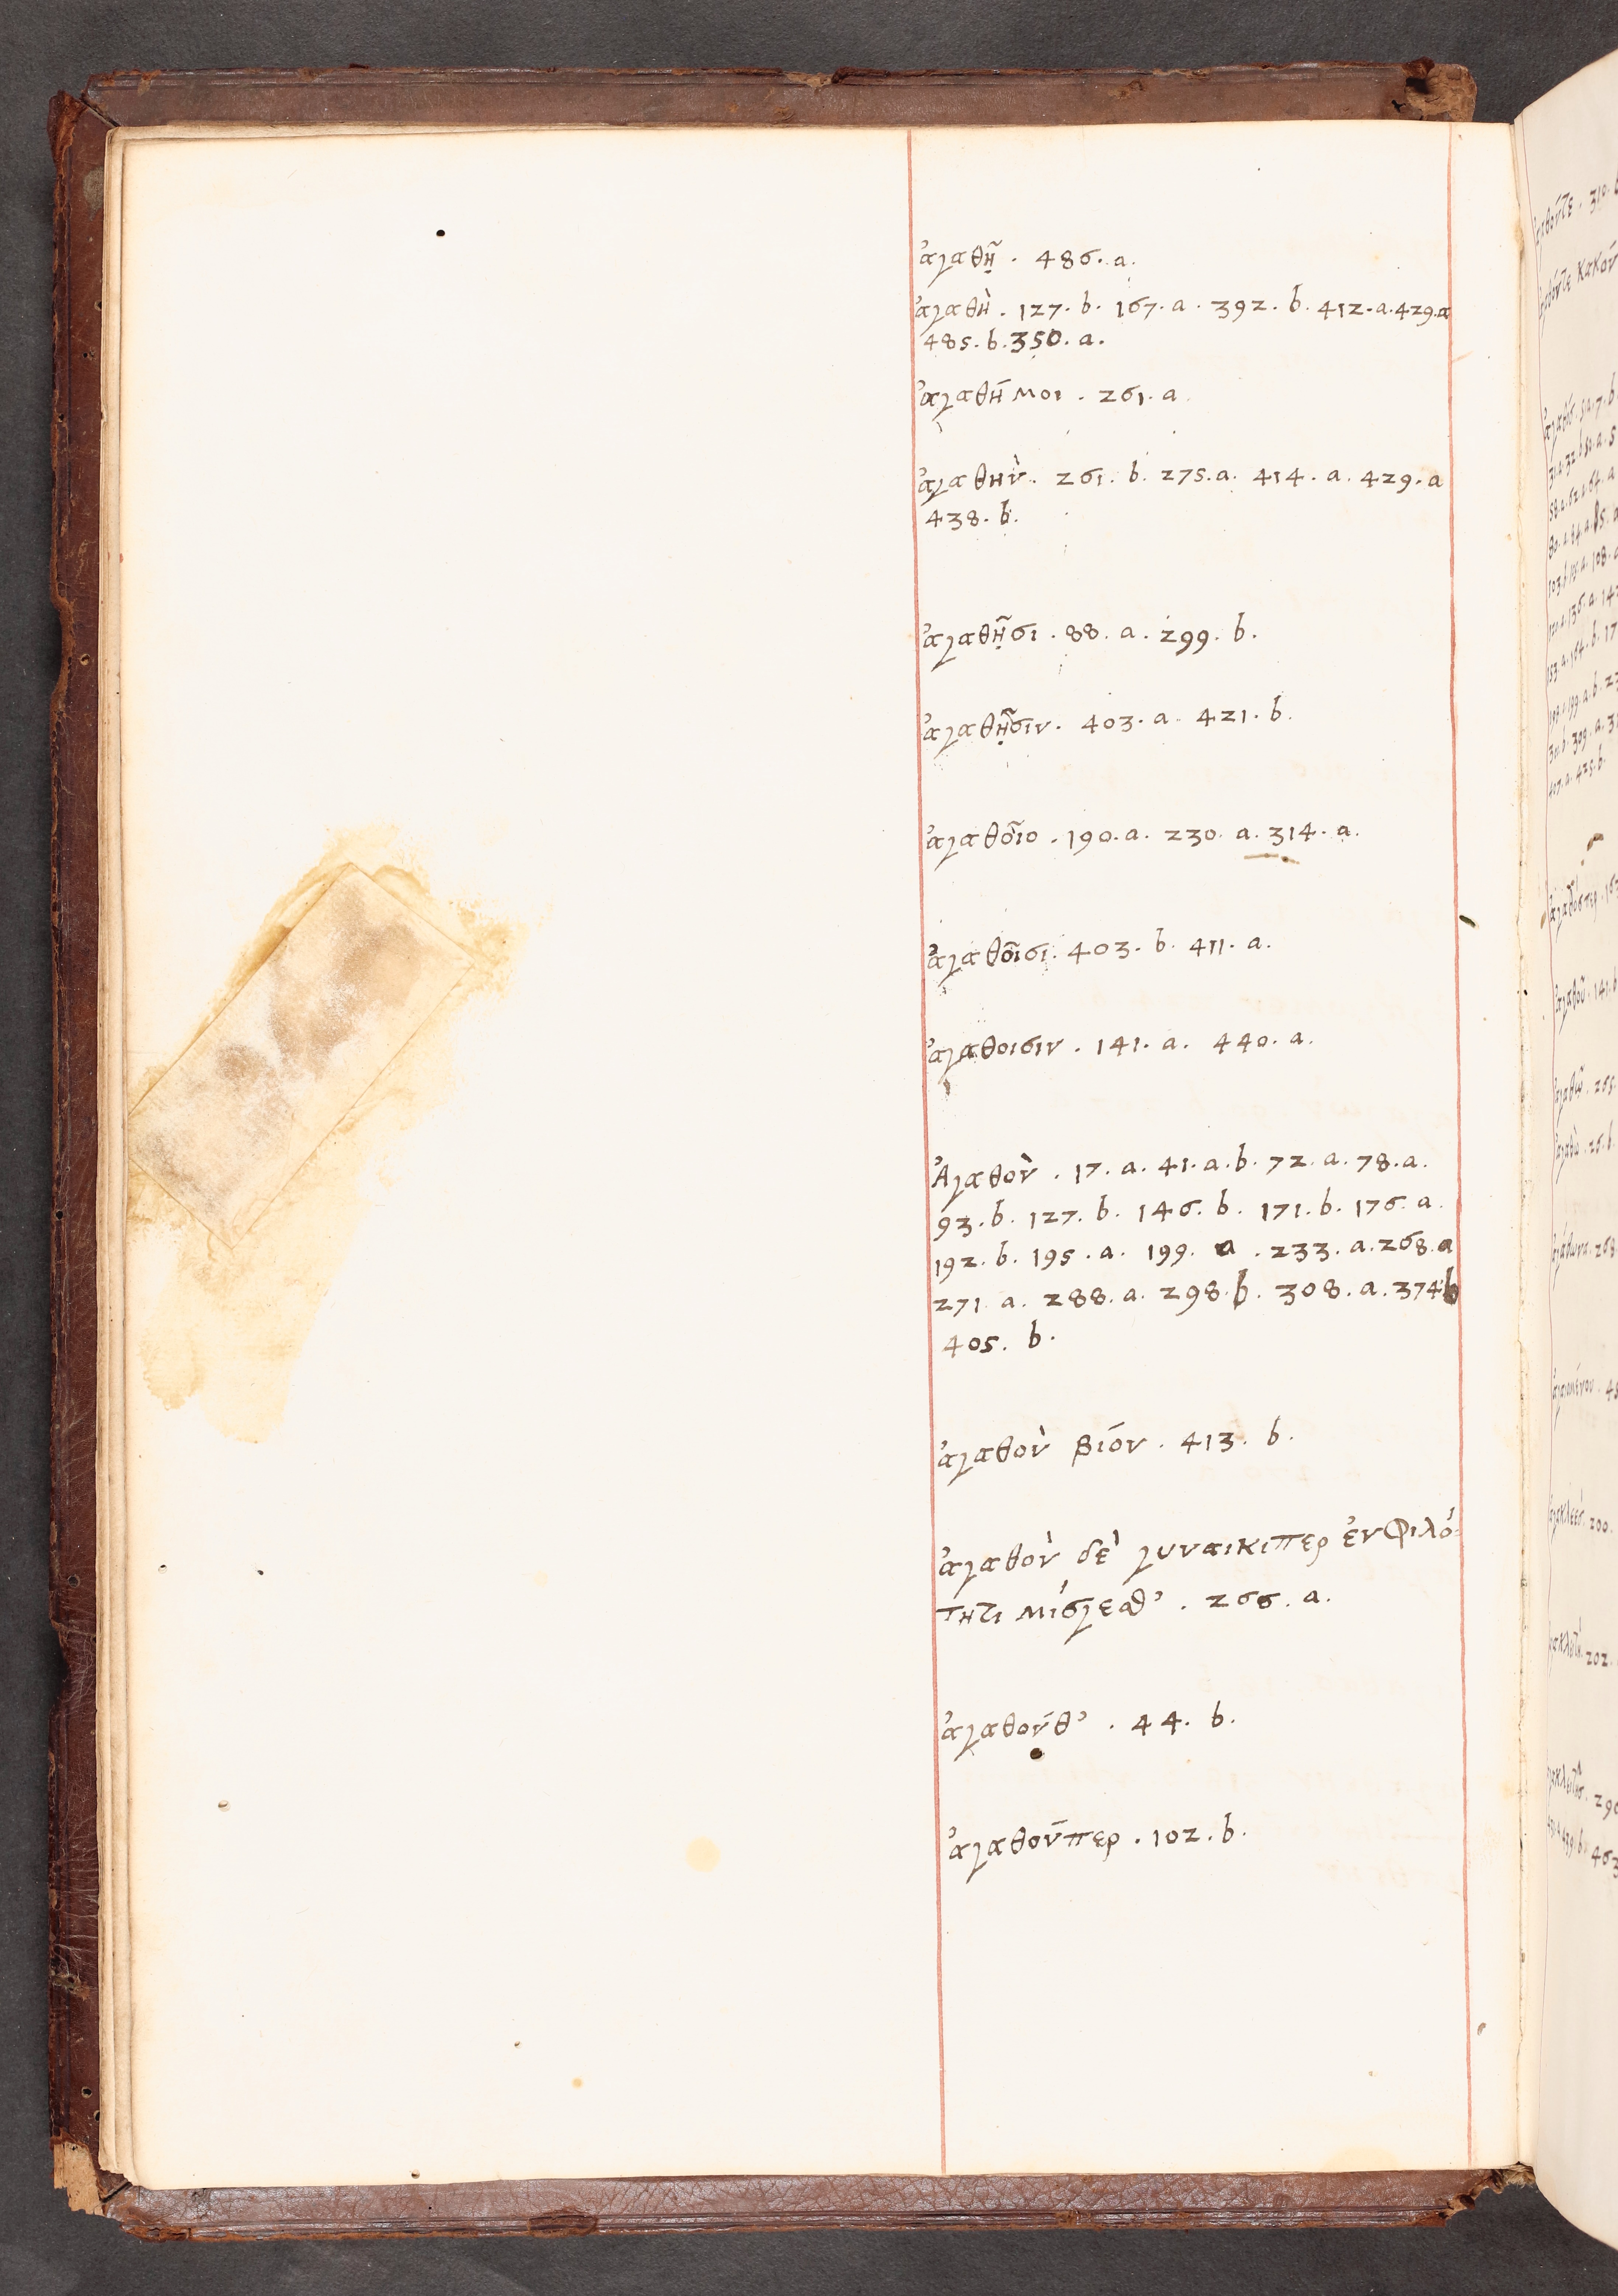 ἀγαθῇ · 486. a.
ἀγαθὴ · 127. b. 167. a. 392. b. 412. a. 429. a
485. b. 350. a.
ἀγαθή μοι · 261. a
ἀγαθὴν. 261. b. 275. a. 414. a. 429. a
438. b.
ἀγαθῇσι · 88. a. 299. b.
ἀγαθῇσιν. 403. a. 421. b.
ἀγαθοῖο · 190. a. 230. a. 314. a.
ἀγαθοῖσι. 403. b. 411. a.
ἀγαθοισιν · 141. a. 440. a.
Ἀγαθὸν · 17. a. 41. a. b. 72. a. 78. a.
93. b. 127. b. 146. b. 171. b. 176. a.
192. b. 195. a. 199. a. 233. a. 268. a
271. a. 288. a. 298. b. 308. a. 374 b
405. b.
ἀγαθὸν βίον · 413. b.
ἀγαθὸν δὲ γυναικιπερ ἐν φιλό-
τητι μίσγεσθ' · 266. a.
ἀγαθόνθ' · 44. b.
ἀγαθόνπερ · 102. b.